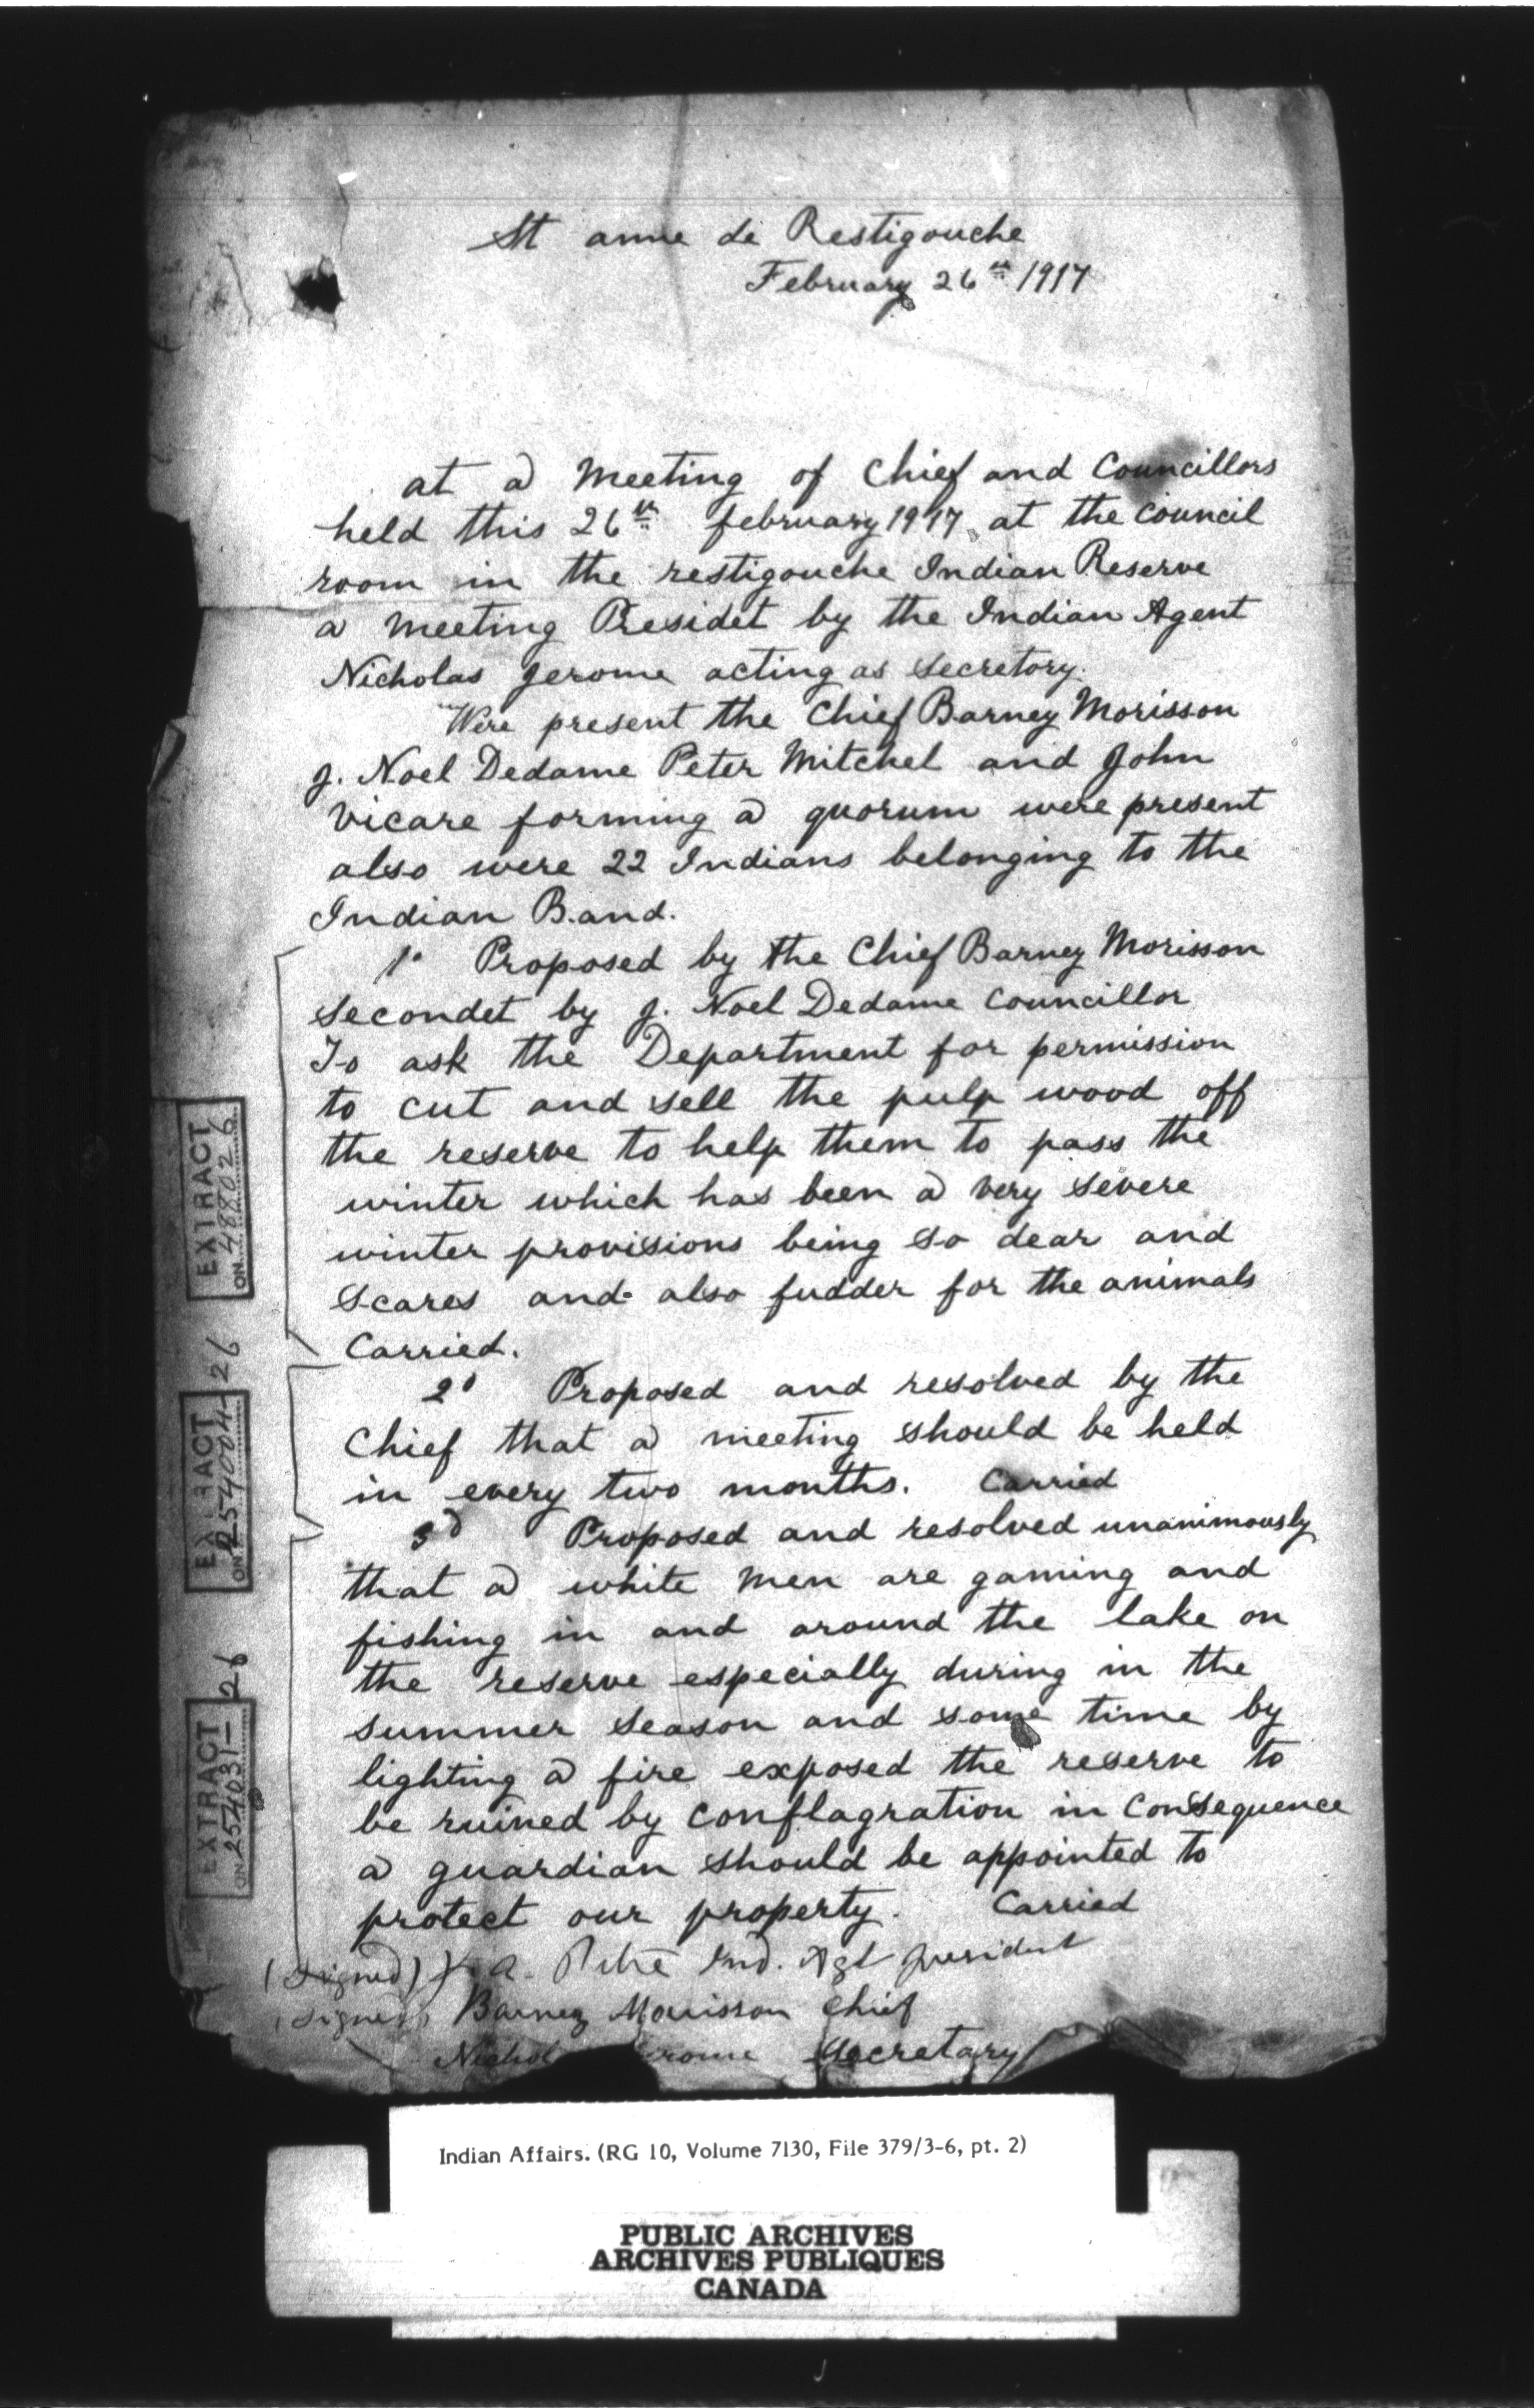 St anne de Restigouche
February 26th 1917
at a Meeting of Chief and Councillors
held this 26th february 1917 at the Council
room in the restigouche Indian Reserve
a Meeting Presidet by the Indian Agent
Nicholas Jerome acting as secretory.
Were present the Chief Barney Morisson
J. Noel Dedame Peter Mitchel and John
Vicare forming a quorum were present
also were 22 Indians belonging to the
Indian Band.
1° Proposed by the Chief Barney Morisson
secondet by J. Noel Dedame Councillor
To ask the Department for permission
to cut and sell the pulp wood off
the reserve to help them to pass the
winter which has been a very severe
winter provisions being so dear and
scares and also fudder for the animals
Carried.
2d Proposed and resolved by the
Chief that a meeting should be held
in every two months. Carried
3d Proposed and resolved unanimously
that a white men are gaming and
fishing in and around the lake on
the reserve especially during in the
summer season and some time by
lighting a fire exposed the reserve to
be ruined by conflagration in Consequence
a guardian should be appointed to
protect our property. Carried
(Signed) J. A. Pitre Ind. Agt president
(signed) Barney Morisson Chief
Nichol erome secretary
EXTRACT
ON 488026
EXTRACT
ON 254004-26
EXTRACT
ON 254031-26
Indian Affairs. (RG 10, Volume 7130, File 379/3-6, pt. 2)
PUBLIC ARCHIVES
ARCHIVES PUBLIQUES
CANADA